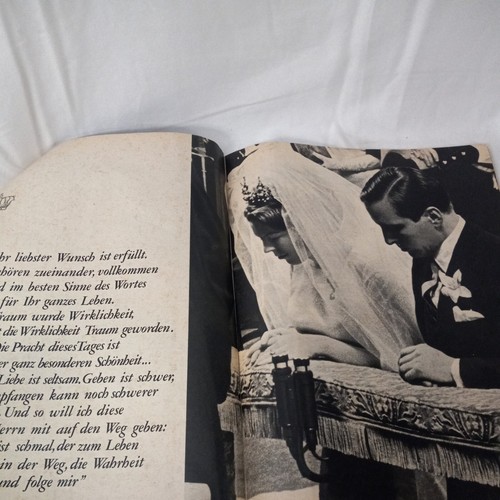 hr liebster Wunsch ist erfüllt.
hören zueinander, vollkommen
d im besten Sinne des Wortes
für Ihr ganzes Leben.
raum wurde Wirklichkeit,
t die Wirklichkeit Traum geworden.
Die Pracht dieses Tages ist
er ganz besonderen Schönheit...
Liebe ist seltsam. Gehen ist schwer,
pfangen kann noch schwerer
. Und so will ich diese
errn mit auf den Weg geben:
ist schmal, der zum Leben
in der Weg, die Wahrheit
und folge mir"